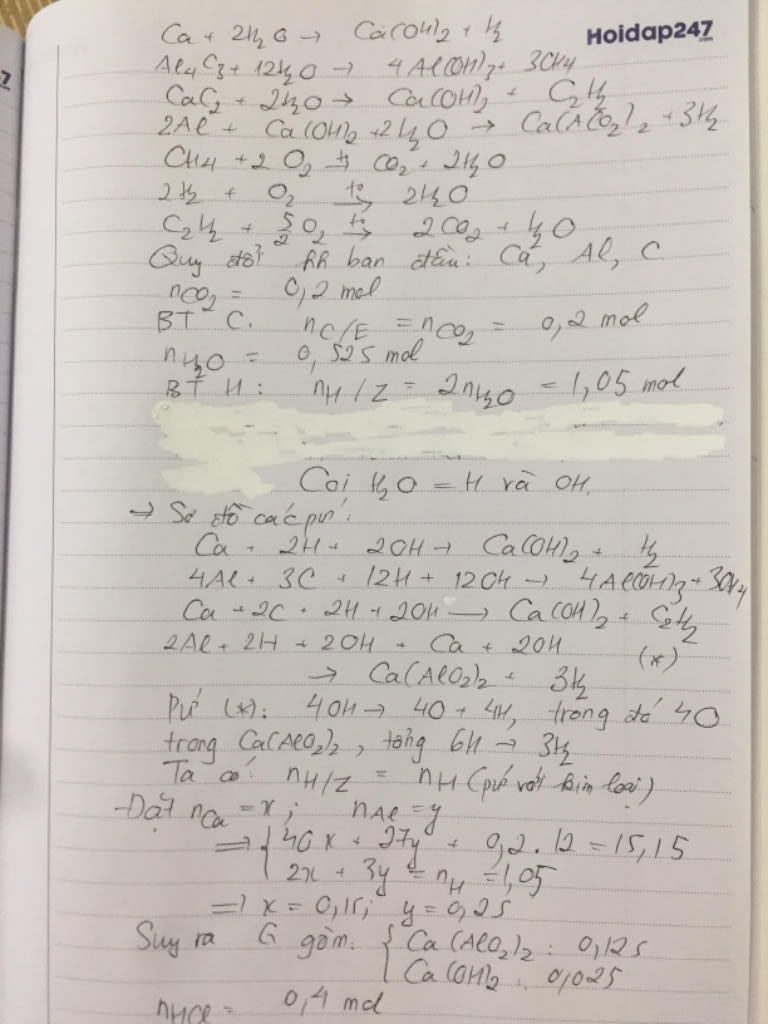 Hoidap247
.com
Ca + 2H₂O → Ca(OH)₂ + H₂
Al₄C₃ + 12H₂O → 4Al(OH)₃ + 3CH₄
CaC₂ + 2H₂O → Ca(OH)₂ + C₂H₂
2Al + Ca(OH)₂ + 2H₂O → Ca(AlO₂)₂ + 3H₂
CH₄ + 2O₂ t°→ CO₂ + 2H₂O
2H₂ + O₂ t°→ 2H₂O
C₂H₂ + 5/2 O₂ t°→ 2CO₂ + H₂O
Quy đổi hh ban đầu: Ca, Al, C
nCO₂ = 0,2 mol
BT C. nC/E = nCO₂ = 0,2 mol
nH₂O = 0,525 mol
BT H: nH/Z = 2nH₂O = 1,05 mol
Coi H₂O = H và OH.
→ Sơ đồ các pứ:
Ca + 2H + 2OH → Ca(OH)₂ + H₂
4Al + 3C + 12H + 12OH → 4Al(OH)₃ + 3CH₄
Ca + 2C + 2H + 2OH → Ca(OH)₂ + C₂H₂
2Al + 2H + 2OH + Ca + 2OH (*)
→ Ca(AlO₂)₂ + 3H₂
Pứ (*): 4OH → 4O + 4H, trong đó 4O
trong Ca(AlO₂)₂, tổng 6H → 3H₂
Ta có: nH/Z = nH (pứ với kim loại)
- Đặt nCa = x; nAl = y
⇒ { 40x + 27y + 0,2.12 = 15,15
2x + 3y = nH = 1,05
⇒ x = 0,15; y = 0,25
Suy ra G gồm: { Ca(AlO₂)₂: 0,125
Ca(OH)₂: 0,025
nHCl = 0,4 mol